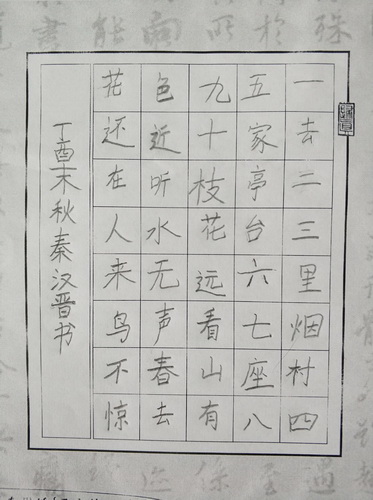 一去二三里烟村四
五家亭台六七座八
九十枝花远看山有
色近听水无声春去
花还在人来鸟不惊
丁酉末秋秦汉晋书